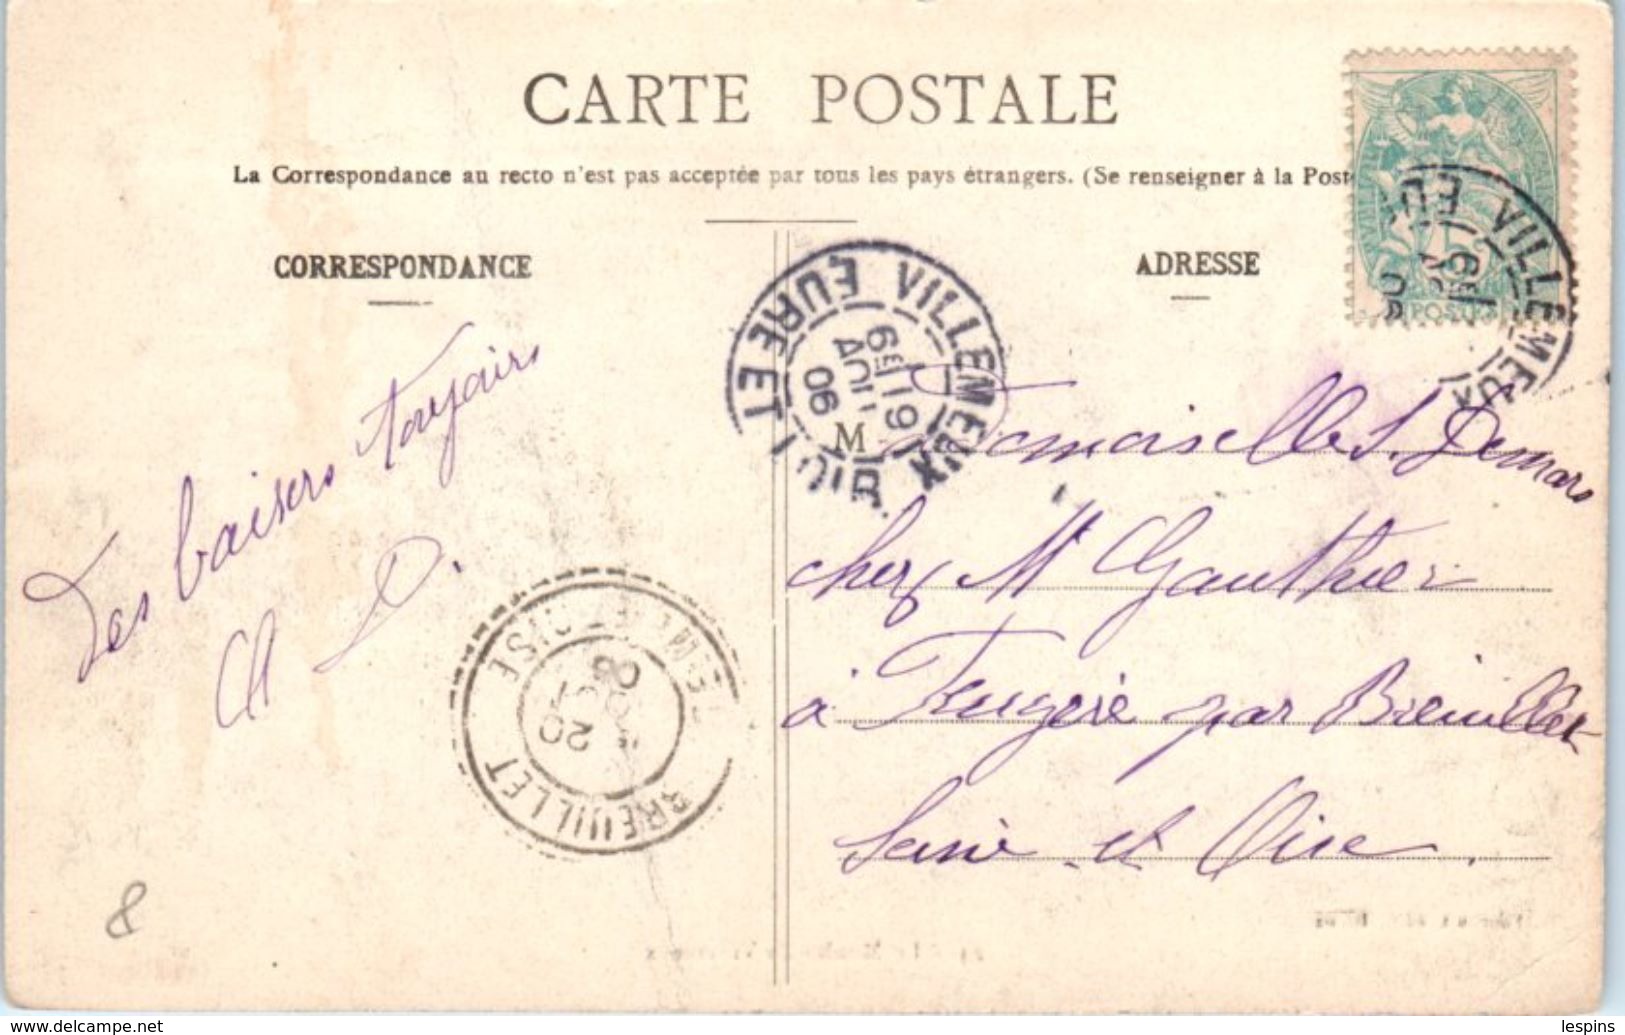 CARTE POSTALE
La Correspondance au recto n'est pas acceptée par tous les pays étrangers. (Se renseigner à la Post
CORRESPONDANCE
ADRESSE
Des baisers toujours
D.
VILLEMEUX
EURE ET LOIR
6E 19
AOUT
06
VILLEMEUX
EU
6E
POSTES
M
demoiselle S. Demars
chez Mr Gauthier
à Feugère par Breuillet
Seine et Oise.
BREUILLET
SEINE ET OISE
20
AOUT
06
8
lespins
www.delcampe.net